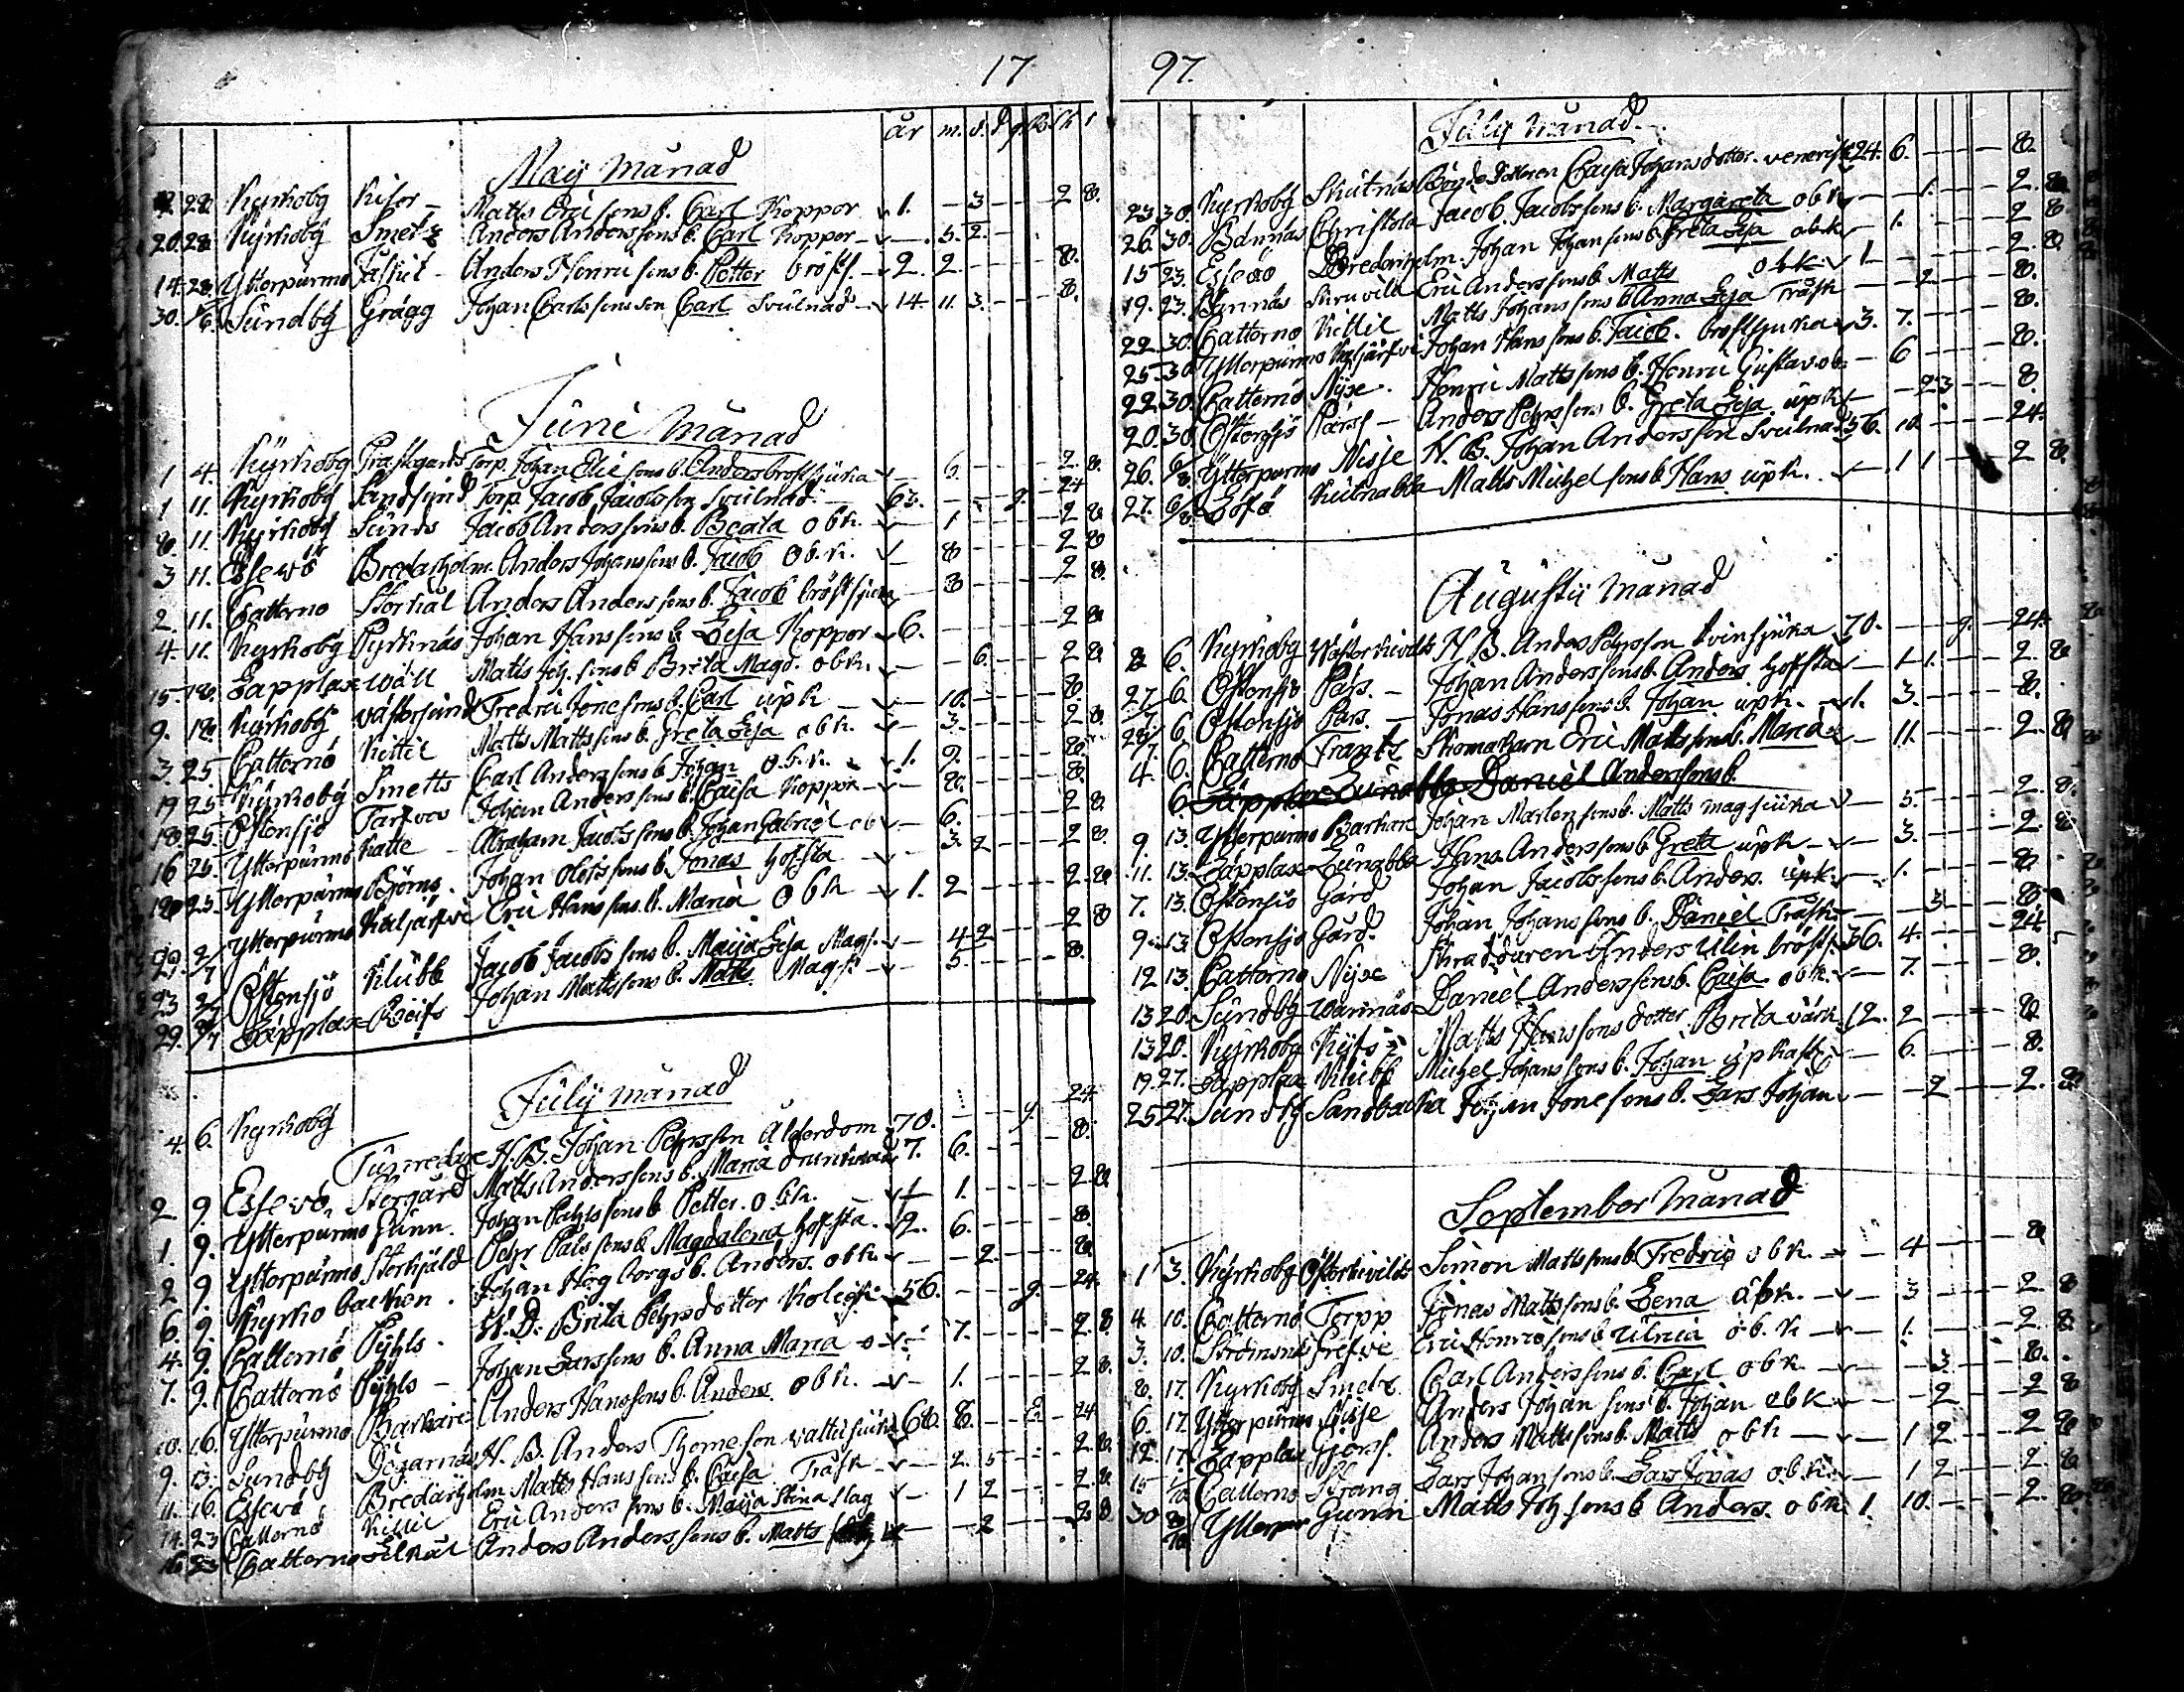 17
år m. d.
Maij månad
22 28 Kyrkoby Kisor - Matts Ericsons b. Carl Koppor 1. - 3 - - - 2 8.
20. 28 Kyrkoby Smets Anders Anderssons b. Carl Koppor - - 5. 2. -
14. 28 Ytterpurmo Fäskit - Anders Henricsons b. Petter bröstf. - 2. 2. - - - 8.
30. 5/6. Sundby Grägg Johan Carlssons son Carl Svulnad - 14. 11. 3. - - - 8.
Juni månad
1 4. Kyrkoby Prästgårds Torp. Johan Elie sons b. Anders bröstsjuka - 6. - - - 2. 8.
1 11. Kyrkoby Sandsund Torp. Jacob Jacobsson Svulnad - 63. - - g. - 24
8 11. Kyrkoby Sunds Jacob Anderssons b. Beata obk. - 1. - - - 2 8
3 11. Essewö Bredarholm. Anders Johanssons b. Jacob ob.k. - 8 - - - 2 8
2. 11. Catterno Storkål Anders Anderssons b. Jacob bröstsjuka - 3 - - - 2 8.
4. 11. Kyrkoby Pyrknäs Johan Hanssons b. Lisa Koppor 6. - - - 2 8.
15. 18. Lappfax Wäll Matts Joh. sons b. Brita Magd. obk. - - 6. - - 2 8
9. 18. Kyrkoby västersund Fredric Jonesons b. Carl upk - 10. - - - 8.
3. 25 Catternö Kittil Matts Mattssons b. Greta Lisa obk. - 3. - - - 2 8.
19 25 Kyrkoby Smetts Carl Anderssons b. Johan o.b.k. 1. 9. - - - 8.
18 25. Östensjö Tarfvas Johan Anderssons b. Caisa Koppor - 20. - - - 8.
16 25. Ytterpurmo Katte - Abraham Jacobssons b. Johan Gabriel ob - 6. - - - 2 8.
18 25. Ytterpurmo Björns. Johan Olofssons b. Jonas hofsta - 3. 2 - - - 2 8.
29. 2/7 Ytterpurmo Kaljärfvi Eric Hanssons b. Maria obk 1. 2 - - - 2. 8
23 2/7 Östensjö Klubb Jacob Jacobssons b. Maija Lisa Mags. - 4 2 - - - 2 8
29. 2/7 Lappfax Reifs Johan Mattssons b. Matts Magsj. - 5. - - - 8.
Julij månad
4. 6. Kyrkoby Tusnredare H. B. Johan Pehrsson Ålderdom 70. - - g. - 24.
2 9. Essewö Storgård Matts Anderssons b. Maria drunknade 7. 6. - - - 8.
1. 9. Ytterpurmo Gunn. Johan Pahlssons b. Petter. obk. - 1. - - - 2 8
2 9. Ytterpurmo Storhjäld Pehr Palssons b. Magdalena hofsta. 2. 6. - - - 8.
6. 9. Kyrkobacken. Johan Högborgs b. Anders. obk. - - 2. - - - 8.
4. 9. Catternö Pyhls. H. D. Brita Pehrsdotter Kolick 56. - - g. - 24.
7. 9. Catternö Pyhls - Johan Larssons b. Anna Maria o - 7. - - - 2. 8.
10. 16. Ytterpurmo Barkare Anders Hanssons b. Anders obk. - 1. - - - 2 8.
9. 13. Sundby Dögarnäs H. B. Anders Thomeson vattusjuka 66. 8. - - g - 24.
11. 16. Essewö Bredarholm Matts Hanssons b. Caisa Träsk - 2. 5 - - - 2. 8.
14. 23 Catternö Kittil Eric Anderssons b. Maija Stina slag - 1 2 - - - 2. 8.
16. 23 Catterno Lelkål Anders Anderssons b. Matts - - 2 - - - 2 8
97.
Julij månad.
23 30. Kyrkoby Skutnäs Bondedottren Caisa Johansdotter. venerisk 24. 6. - - - 8.
26. 30. Bannäs Christola Jacob. Jacobssons b. Margareta obk - 1. - - 2. 8
15 23. Essewö Bredarholm. Johan Johanssons b. Greta Lisa obk. - 1. - - - 2 8
19. 23. Bannäs Skruvila Eric Anderssons b. Matts obk. 1 - - - 2. 8.
22 30. Catterno Kittil Matts Johanssons b. Anna Lisa Träsk - - 2 - - - 8.
25. 30 Ytterpurmo Kaljärfvi Johan Hanssons b. Jacob. bröstsjuka 3. 7. - - - 8.
22 30. Catternö Nyse. Henric Mattssons b. Henric Gustav ob. - 6 - - - 8.
20. 30. Östensjö Pärss - Anders Pehrssons b. Greta Lisa upk - 2 3 - - 8.
26. 6/8 Ytterpurmo Nisse H. B. Johan Andersson Svulnad 56. 10. - - - 24.
27. 6/8 Esö Kulnabba Matts Michelssons b. Hans upk. - 1 1 - - 2 8.
Augustij månad
8 6. Kyrkoby Wäster kivilös H. B. Anders Pehrsson tvinsjuka 70. - - g. - 24.
27/7 6. Östensjö Pärs. - Johan Anderssons b. Anders hofsta - 1 1. - - 2. 8
28/7. 6 Östensjö Pärs. - Jonas Hanssons b. Johan upk. - 1. 3. - - - 8.
4. 6. Catterno Frants Skomakaren Eric Mattssons b. Maria - 11. - - - 2. 8
6. Lappfax Lunabba Daniel Anderssons b.
9. 13. Ytterpurmo Barkare Johan Martenssons b. Matts magsjuka - 5. - - - 2. 8.
11. 13. Lappfax Lunabba Hans Anderssons b. Greta upk - 3. - - - 2. 8
7. 13. Östensjö Gärd Johan Jacobssons b. Anders. upk - 1. - - - 8.
9. 13 Östensjö Gärd. Johan Johanssons b. Daniel Träsk - - 3 - - - 8.
12 13. Catterno Nyse Skräddaren Anders Ulin bröstf. 36. 4. - - - 24
13 20. Sundby Warinäs Daniel Anderssons b. Caisa obk. - 7. - - - 8.
13 20. Kyrkoby Kyfs Matts Hanssons dotter Brita värk 12. 2 - - - 8.
19. 27. Lappfax Klubb Michel Johanssons b. Johan upkast - 6. - - - 8.
25 27. Sundby Sandbacka Johan Jonesons b. Lars Johan - - 2 - - 2. 8.
September månad
1 3. Kyrkoby Österkivilös Simon Mattssons b. Fredric obk. - 4 - - - 8
4. 10. Catternö Torpp Jonas Mattssons b. Lena obk. - 3 - - - 2. 8
3. 10. Eric Henricssons b. Ulrica ob.k - 1. - - - 2. 8.
8. 17. Kyrkoby Smets Carl Anderssons b. Carl obk - - 3 - - - 8.
6. 17. Ytterpurmo Nisse Anders Johanssons b. Johan obk - - 2 - - - 2 8
12. 17. Lappfax Gjers. Anders Mattssons b. Matts obk - 1 2 - - - 2 8
15 1/10 Catterno Strang Lars Johanssons b. Lars Jonas obk. - 1 2 - - - 2 8
30 8/10 Ytterpur Gunn Matts Joh. sons b Anders. obk 1. 10. - - - 2. 8.